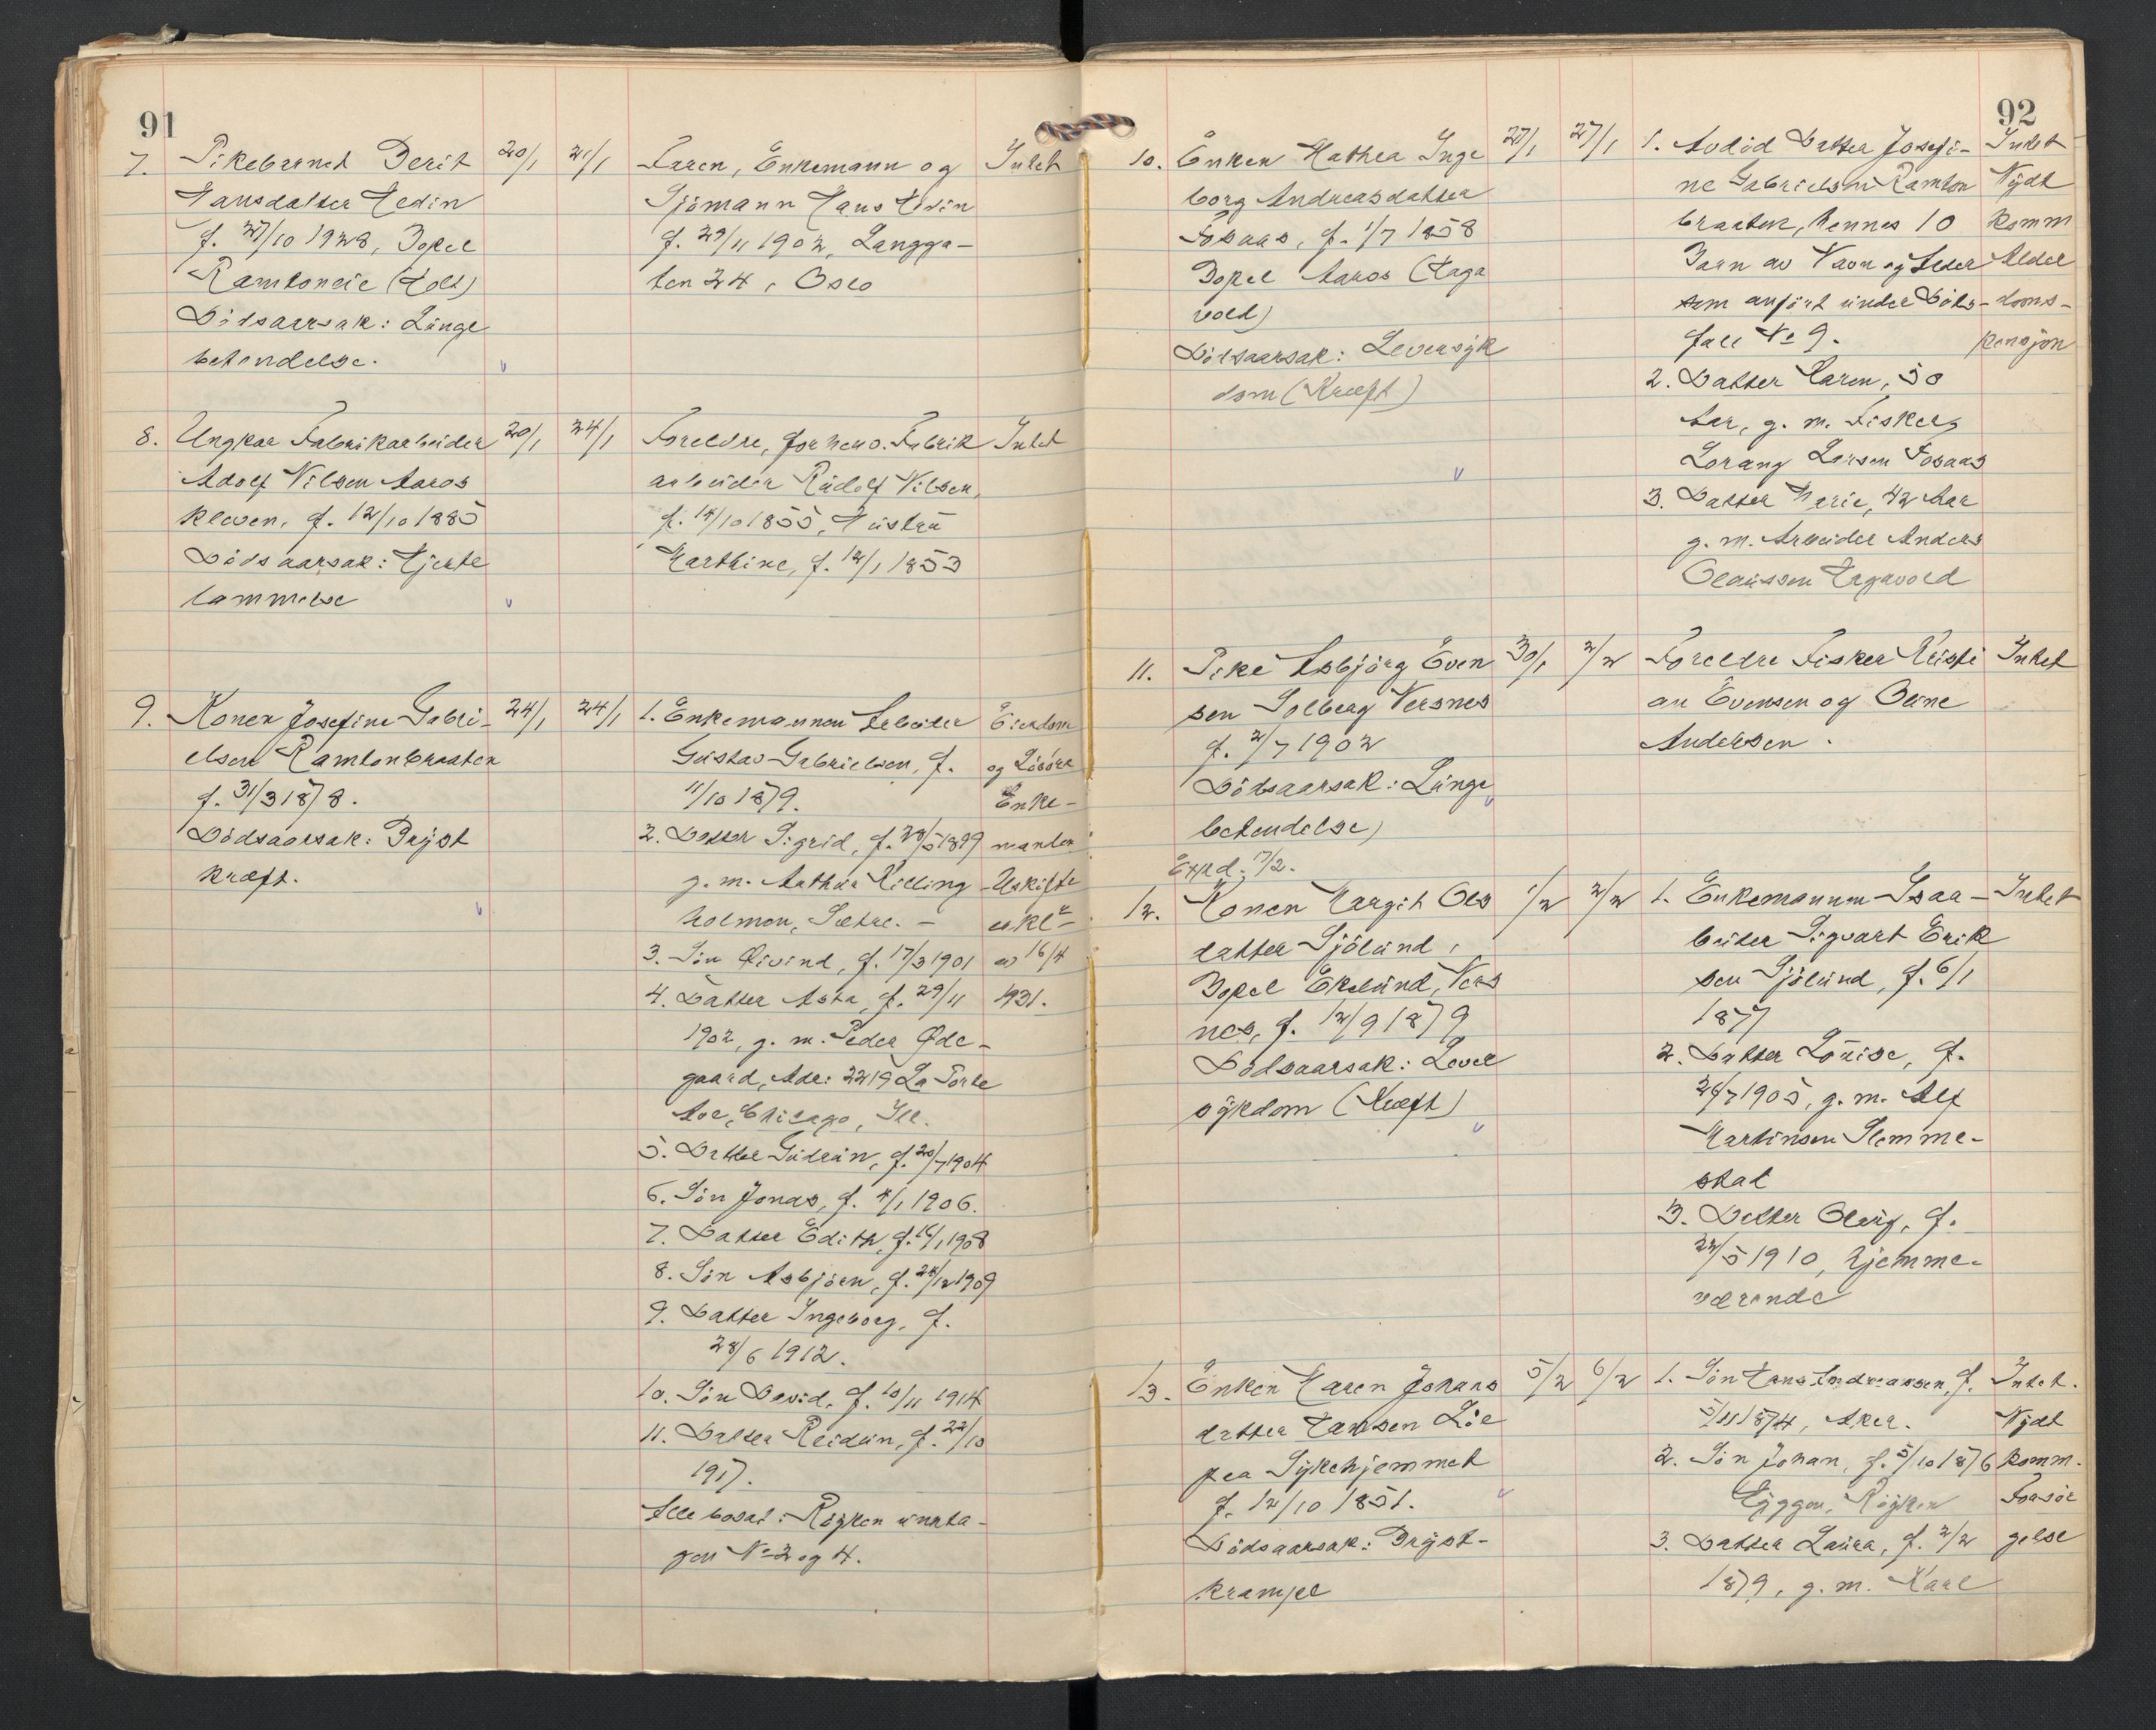 91
7. Pikebarnet Berit 20/1 21/1 Faren, Enkemann og Intet
Hansdatter Hedin Sjömann Hans Hedin
f. 27/10 1928, Bopel f. 29/11 1902, Langga-
Ramtoneie (Holt) ten 24, Oslo
Dödsaarsak: Lunge
betendelse.
8. Ungkar Fabrikarbeider 20/1 24/1 Foreldre, forhenv. Fabrik Intet
Adolf Nilsen Aaros arbeider Rudolf Nilsen,
kleven, f. 12/10 1885 f. 14/10 1855, Hustru
Dödsaarsak: Hjerte Marthine, f. 12/1 1853
lammelse
9. Konen Josefine Gabri- 24/1 24/1 1. Enkemannen Arbeider Eiendom
elsen Ramtonbraaten Gustav Gabrielsen, f. og Lösöre
f. 31/3 1878. 11/10 1879. Enke-
Dödsaarsak: Bryst 2. Datter Sigrid, f. 28/5 1899 manden
kreft. g. m. Arthur Killing Uskifte
holmen, Sætre. - erkl.
3. Sön Øivind, f. 17/3 1901 av 16/4
4. Datter Asta, f. 29/11 1931.
1902, g. m. Peder Øde-
gaard, Adr: 2219 La Porte
Ave, Chicago, Ill.
5. Datter Gudrun, f. 20/7 1904
6. Sön Jonas, f. 4/1 1906.
7. Datter Edith, f. 16/1 1908
8. Sön Asbjörn, f. 24/12 1909
9. Datter Ingeborg, f.
28/6 1912.
10. Sön David, f. 10/11 1914
11. Datter Reidun, f. 22/10
1917.
Alle bosat i Röyken unnta-
gen No 2 og 4.
92
10. Enken Mathea Inge 27/1 27/1 1. Avdöd Datter Josefi- Intet
borg Andreasdatter ne Gabrielsen Ramton Nydt
Fosaas, f. 1/7 1858 braaten, hennes 10 komm
Bopel Aaros (Haga Barn av Navn og Alder Alder
vold) som anfört under Döds- doms-
Dödsaarsak: Leversyk fall No 9. pensjon
dom (Kræft) 2. Datter Karen, 50
Aar, g. m. Fisker
Lorang Larsen Fosaas
3. Datter Marie, 42 Aar
g. m. Arbeider Anders
Olaussen Hagavold
11. Pike Asbjörg Even 30/1 2/2 Foreldre Fisker Kristi Intet
sen Solberg Nersnes an Evensen og Oline
f. 2/7 1902 Andersen.
Dödsaarsak: Lunge
betendelse)
Exped. 17/2.
12. Konen Margit Ols 1/2 2/2 1. Enkemannen Isaa- Intet
datter Sjölund, beider Sigvart Erik
Bopel Ekelund, Ners sen Sjölund, f. 6/1
nes, f. 12/9 1879 1877
Dödsaarsak: Lever 2. Datter Louise, f.
sykdom (Kreft) 26/7 1905, g. m. Alf
Martinsen Slemme-
stad
3. Datter Olaug, f.
22/5 1910, hjemme-
værende
13. Enken Maren Johans 5/2 6/2 1. Sön Hans Andreassen, f. Intet.
datter Hansen Löe 5/11 1874, Aker. Nydt
paa Sykehjemmet 2. Sön Johan, f. 5/10 1876 komm.
f. 12/10 1851. Hyggen, Röyken Forsör
Dödsaarsak: Bryst- 3. Datter Laura, f. 2/2 gelse
krampe 1879, g. m. Karl